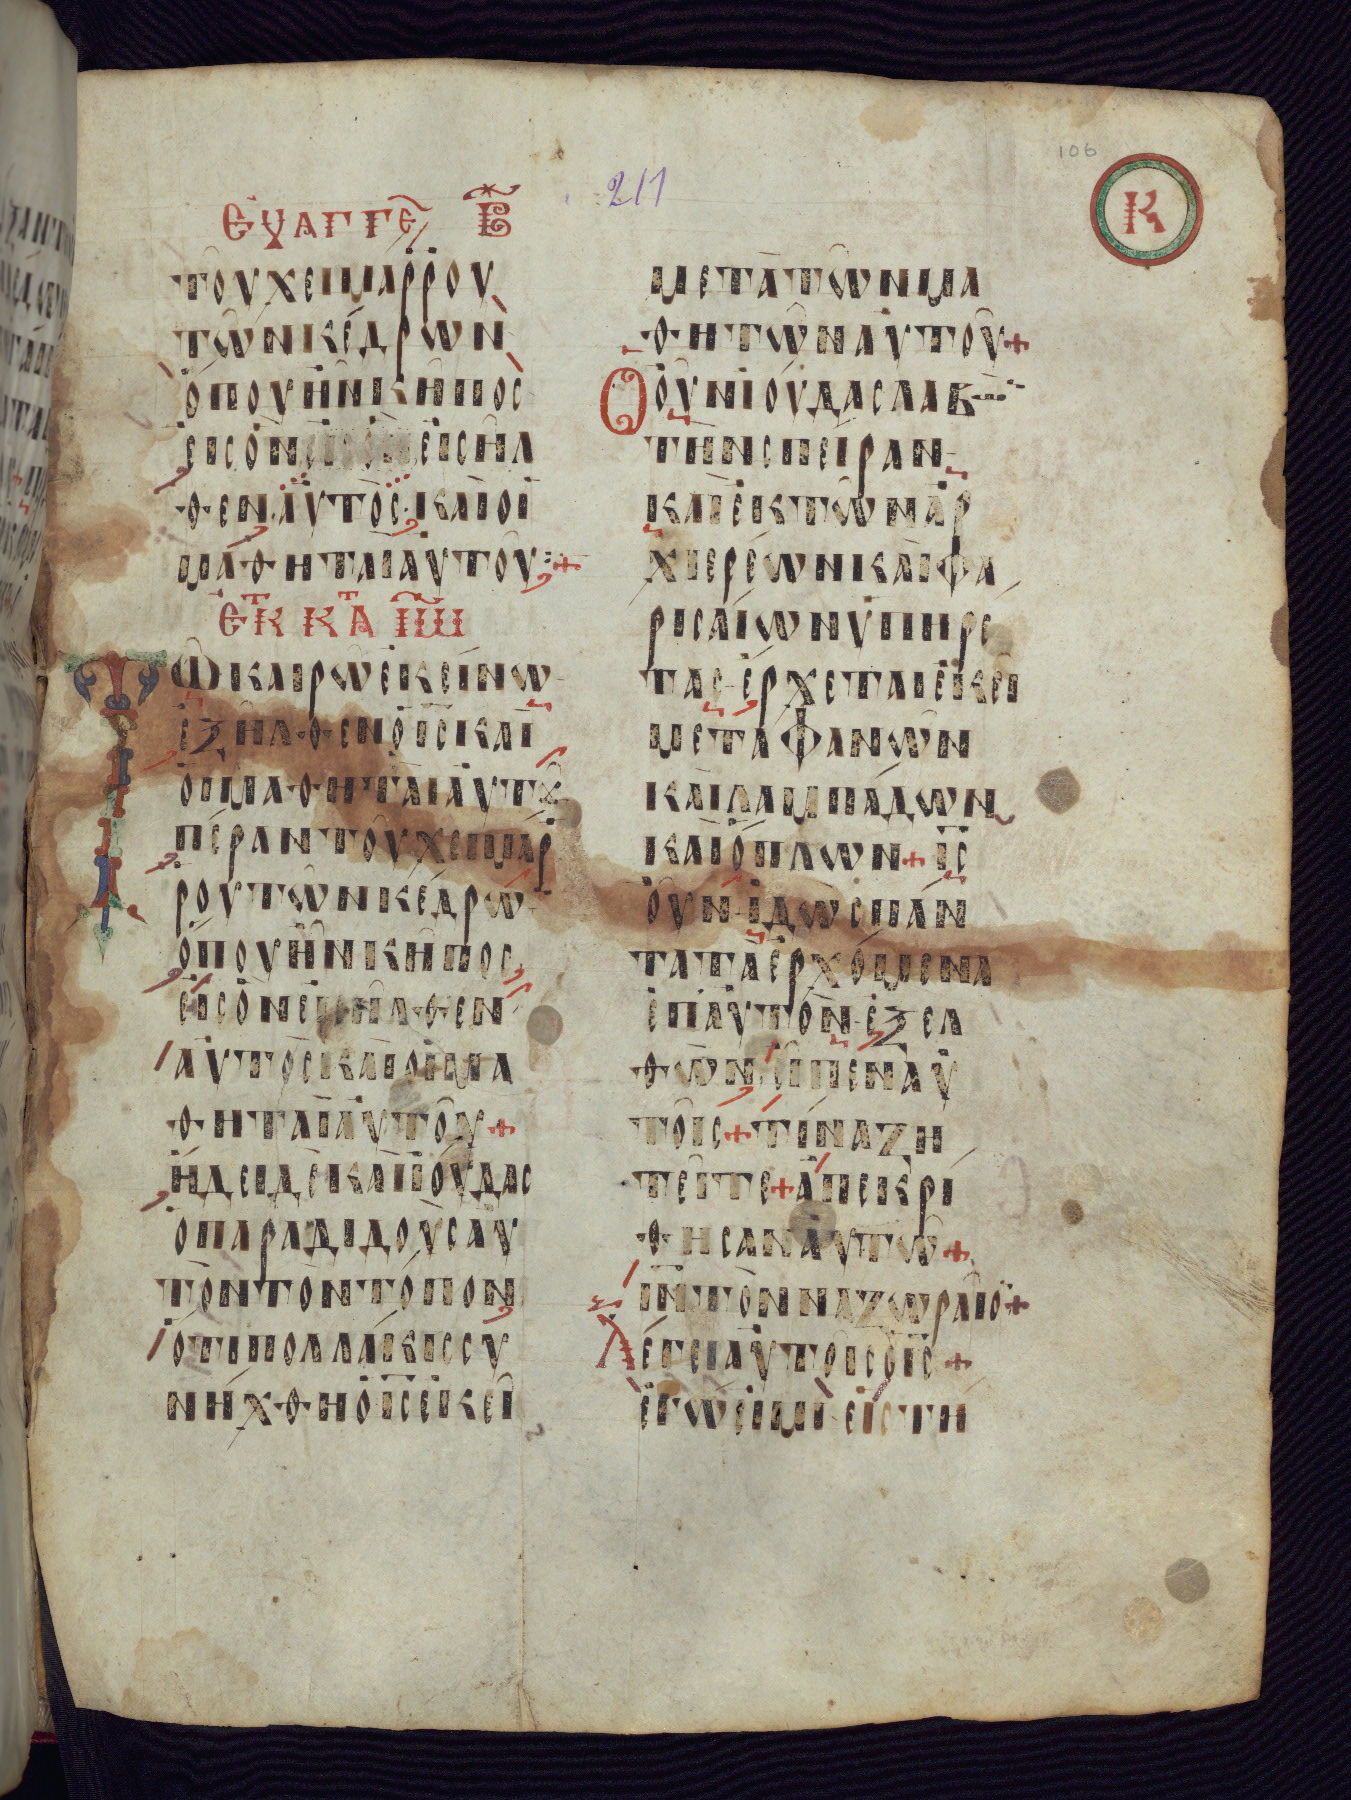 106
Κ
211
ΕΥΑΓΓΕ Β
ΤΟΥ ΧΕΙΜΑΡΡΟΥ
ΤΩΝ ΚΕΔΡΩΝ
ΟΠΟΥ ΗΝ ΚΗΠΟΣ
ΕΙΣ ΟΝ ΕΙΣΗΛ
ΘΕΝ ΑΥΤΟΣ ΚΑΙ ΟΙ
ΜΑΘΗΤΑΙ ΑΥΤΟΥ +
ΕΚ Κ̅Α̅ ΙΩ
Τῼ ΚΑΙΡΩ ΕΚΕΙΝΩ
ΕΞΗΛΘΕΝ Ο ΙΣ ΚΑΙ
ΟΙ ΜΑΘΗΤΑΙ ΑΥΤȢ
ΠΕΡΑΝ ΤΟΥ ΧΕΙΜΑΡ
ΡΟΥ ΤΩΝ ΚΕΔΡΩ
ΟΠΟΥ ΗΝ ΚΗΠΟΣ
ΕΙΣ ΟΝ ΕΙΣΗΛΘΕΝ
ΑΥΤΟΣ ΚΑΙ ΟΙ ΜΑ
ΘΗΤΑΙ ΑΥΤΟΥ +
ΗΔΕΙ ΔΕ ΚΑΙ ΙΟΥΔΑΣ
Ο ΠΑΡΑΔΙΔΟΥΣ ΑΥ
ΤΟΝ ΤΟΝ ΤΟΠΟΝ
ΟΤΙ ΠΟΛΛΑΚΙΣ ΣΥ
ΝΗΧΘΗ Ο ΙΣ ΕΚΕΙ
ΜΕΤΑ ΤΩΝ ΜΑ
ΘΗΤΩΝ ΑΥΤΟΥ +
Ο ΟΥΝ ΙΟΥΔΑΣ ΛΑΒ
ΤΗΝ ΣΠΕΙΡΑΝ
ΚΑΙ ΕΚ ΤΩΝ ΑΡ
ΧΙΕΡΕΩΝ ΚΑΙ ΦΑ
ΡΙΣΑΙΩΝ ΥΠΗΡΕ
ΤΑΣ ΕΡΧΕΤΑΙ ΕΚΕΙ
ΜΕΤΑ ΦΑΝΩΝ
ΚΑΙ ΛΑΜΠΑΔΩΝ
ΚΑΙ ΟΠΛΩΝ + ΙΣ
ΟΥΝ ΙΔΩΣ ΠΑΝ
ΤΑ ΤΑ ΕΡΧΟΜΕΝΑ
ΕΠ ΑΥΤΟΝ ΕΞΕΛ
ΘΩΝ ΕΙΠΕΝ ΑΥ
ΤΟΙΣ + ΤΙΝΑ ΖΗ
ΤΕΙΤΕ + ΑΠΕΚΡΙ
ΘΗΣΑΝ ΑΥΤΩ +
ΙΝ ΤΟΝ ΝΑΖΩΡΑΙΟ +
ΛΕΓΕΙ ΑΥΤΟΙΣ Ο ΙΣ +
ΕΓΩ ΕΙΜΙ ΕΙΣΤΗ